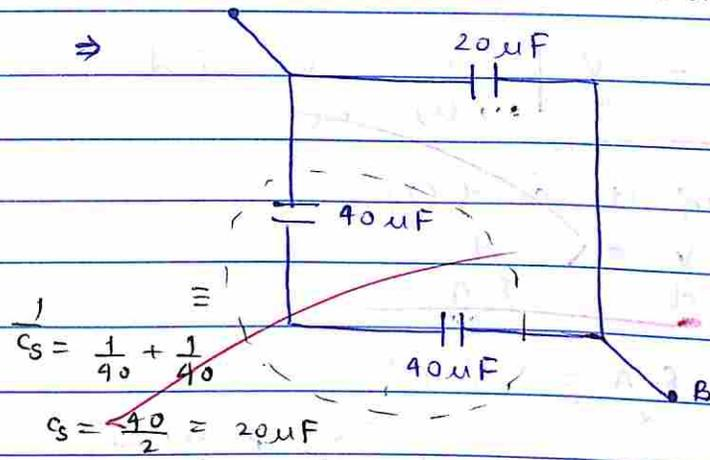 ⇒
20 μF
40 μF
≡
1/Cs = 1/40 + 1/40
40 μF
B
Cs = 40/2 = 20 μF